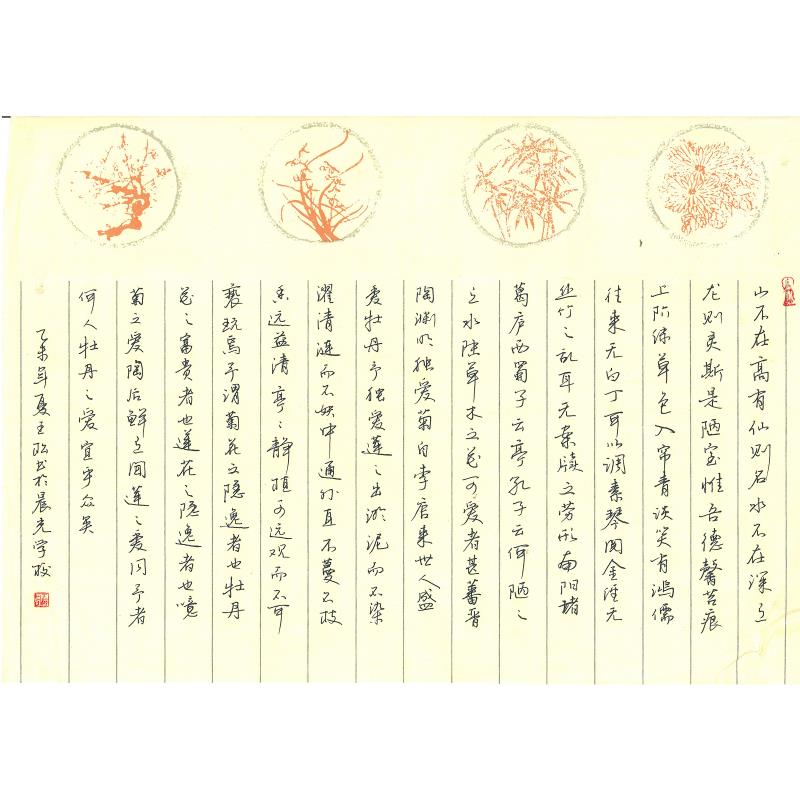 山不在高有仙则名水不在深有
龙则灵斯是陋室惟吾德馨苔痕
上阶绿草色入帘青谈笑有鸿儒
往来无白丁可以调素琴阅金经无
丝竹之乱耳无案牍之劳形南阳诸
葛庐西蜀子云亭孔子云何陋之
有水陆草木之花可爱者甚蕃晋
陶渊明独爱菊自李唐来世人盛
爱牡丹予独爱莲之出淤泥而不染
濯清涟而不妖中通外直不蔓不枝
香远益清亭亭静植可远观而不可
亵玩焉予谓菊花之隐逸者也牡丹
花之富贵者也莲花之隐逸者也噫
菊之爱陶后鲜有闻莲之爱同予者
何人牡丹之爱宜乎众矣
乙未年夏王松书于晨光学校